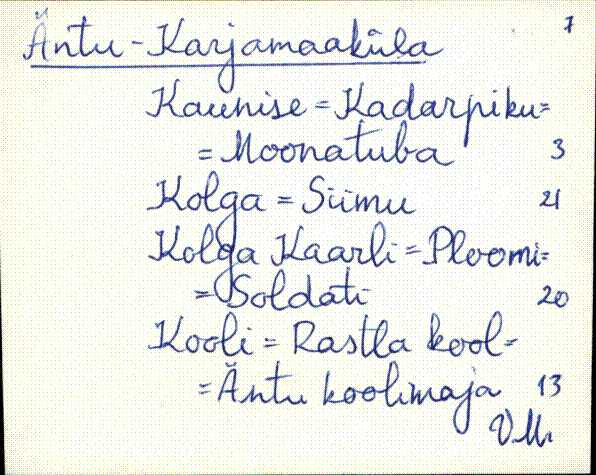 Äntu-Karjamaaküla 7
Kaunise = Kadarpiku =
= Moonatuba 3
Kolga = Siimu 21
Kolga Kaarli = Ploomi =
= Soldati 20
Kooli = Rastla kool =
= Äntu koolimaja 13
V. Mr